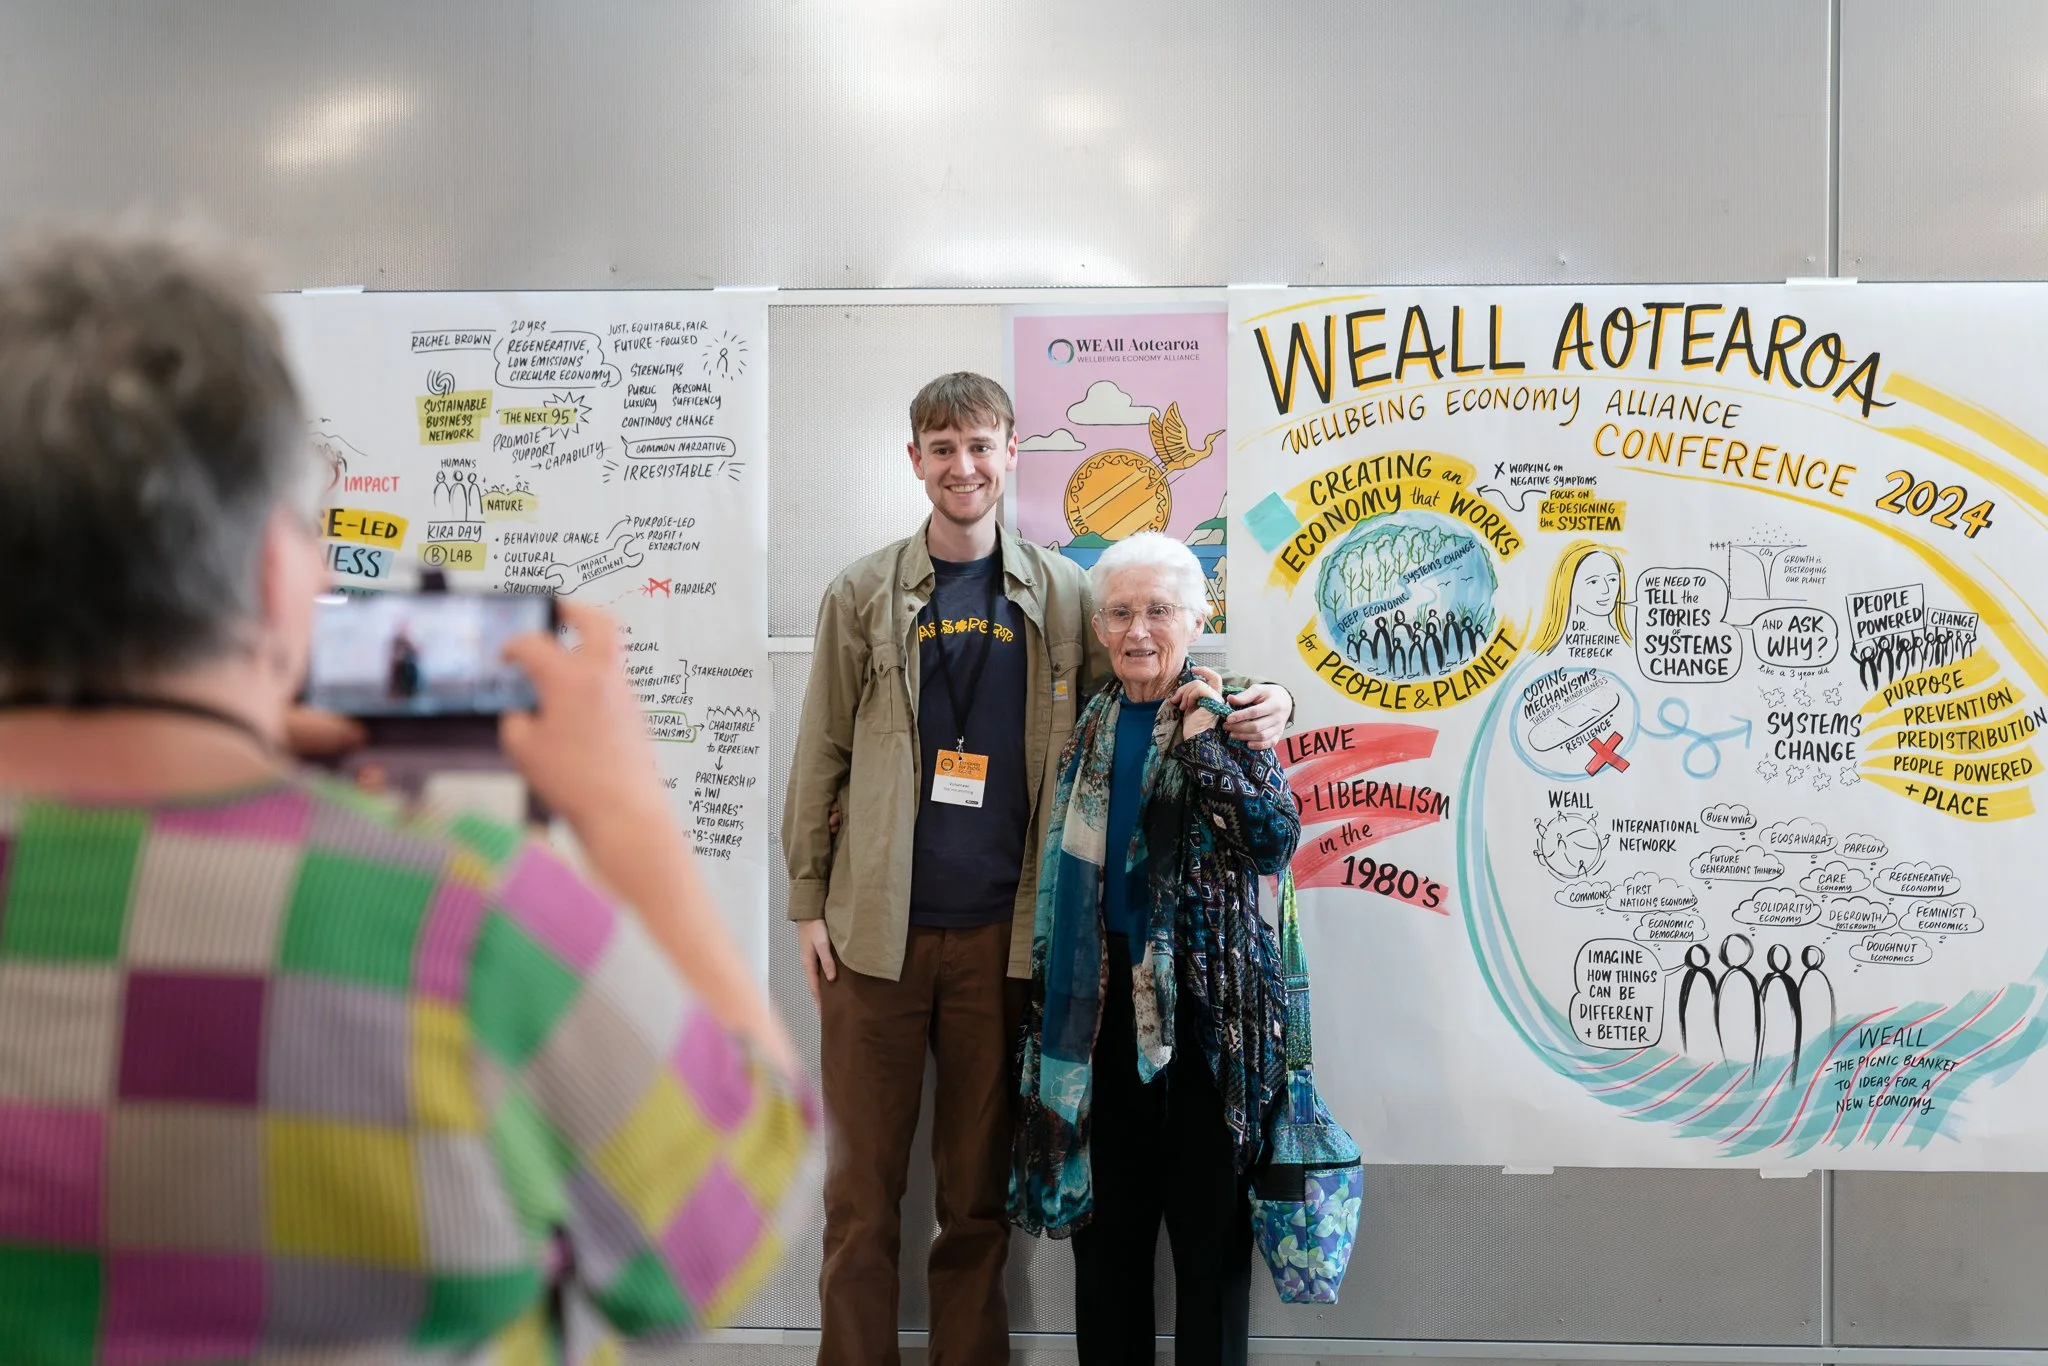 RACHEL BROWN
20 YRS
REGENERATIVE,
LOW EMISSIONS
CIRCULAR ECONOMY
JUST, EQUITABLE, FAIR
FUTURE-FOCUSED
STRENGTHS
PUBLIC
LUXURY
PERSONAL
SUFFICENCY
CONTINOUS CHANGE
COMMON NARRATIVE
IRRESISTABLE!
SUSTAINABLE
BUSINESS
NETWORK
"THE NEXT 95"
PROMOTE
SUPPORT
→ CAPABILITY
HUMANS
NATURE
IMPACT
E-LED
ESS
KIRA DAY
B LAB
• BEHAVIOUR CHANGE
• CULTURAL
CHANGE
• STRUCTURA
IMPACT
ASSESSMENT
PURPOSE-LED
VS PROFIT +
EXTRACTION
BARRIERS
STAKEHOLDERS
CHARITABLE
TRUST
to REPRESENT
PARTNERSHIP
IWI
"A"-SHARES
VETO RIGHTS
"B"-SHARES
INVESTORS
WEAll Aotearoa
WELLBEING ECONOMY ALLIANCE
WEALL AOTEAROA
WELLBEING ECONOMY ALLIANCE
CONFERENCE 2024
CREATING an
ECONOMY that WORKS
for PEOPLE & PLANET
DEEP ECONOMIC
SYSTEMS CHANGE
X WORKING on
NEGATIVE SYMPTOMS
FOCUS ON
RE-DESIGNING
the SYSTEM
DR.
KATHERINE
TREBECK
WE NEED TO
TELL the
STORIES
of
SYSTEMS
CHANGE
CO2
GROWTH is
DESTROYING
OUR PLANET
AND ASK
WHY?
like a 3 year old
PEOPLE
POWERED
CHANGE
COPING
MECHANISMS
THERAPY MINDFULNESS
RESILIENCE
SYSTEMS
CHANGE
PURPOSE
PREVENTION
PREDISTRIBUTION
PEOPLE POWERED
+ PLACE
LEAVE
O-LIBERALISM
in the
1980'S
WEALL
INTERNATIONAL
NETWORK
BUEN VIVIR
ECOSAWARAJ
PARECON
FUTURE
GENERATIONS THINKING
CARE
ECONOMY
REGENERATIVE
ECONOMY
COMMONS
FIRST
NATIONS ECONOMIC
SOLIDARITY
ECONOMY
DEGROWTH/
POSTGROWTH
FEMINIST
ECONOMICS
ECONOMIC
DEMOCRACY
DOUGHNUT
ECONOMICS
IMAGINE
HOW THINGS
CAN BE
DIFFERENT
+ BETTER
WEALL
-THE PICNIC BLANKET
TO IDEAS FOR A
NEW ECONOMY